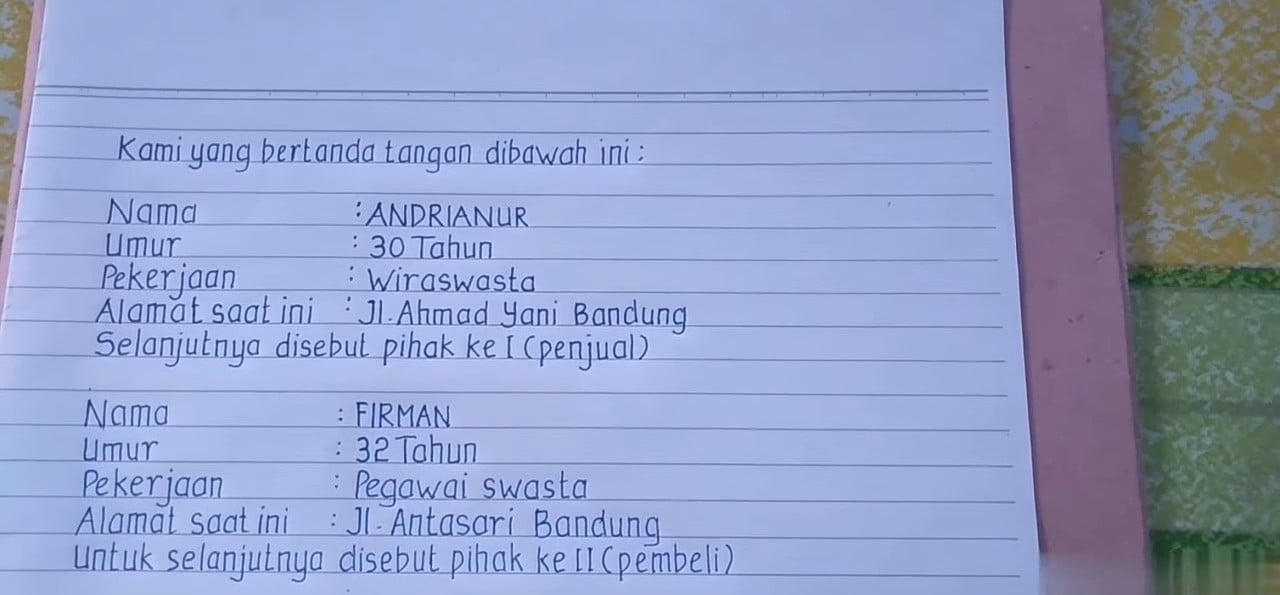 Kami yang bertanda tangan dibawah ini :
Nama : ANDRIANUR
Umur : 30 Tahun
Pekerjaan : Wiraswasta
Alamat saat ini : Jl. Ahmad Yani Bandung
Selanjutnya disebut pihak ke I (penjual)
Nama : FIRMAN
Umur : 32 Tahun
Pekerjaan : Pegawai swasta
Alamat saat ini : Jl. Antasari Bandung
Untuk selanjutnya disebut pihak ke II (pembeli)